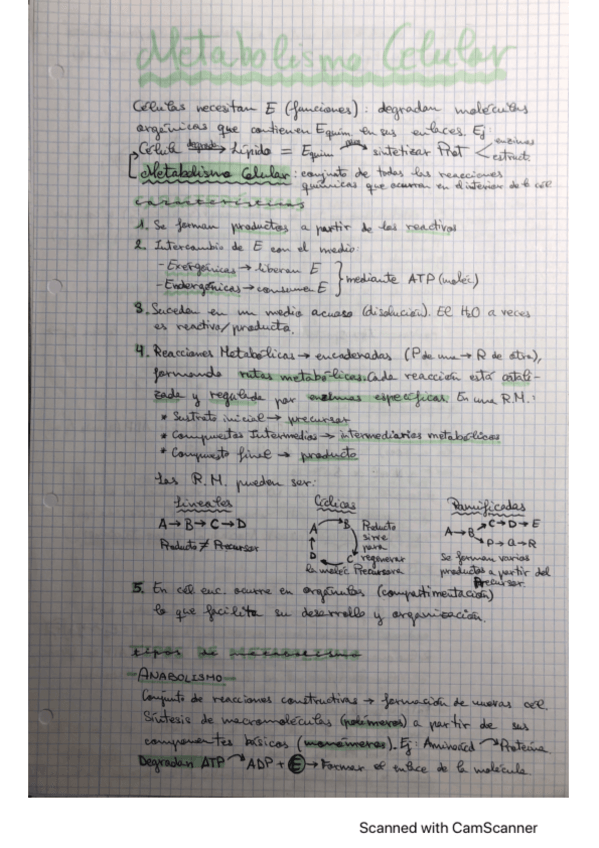 Metabolismo Celular
Células necesitan E (funciones): degradan moléculas
orgánicas que contienen Equím en sus enlaces. Ej:
Célula → Lípido = Equím → sintetizar Prot < enzimas
estruct.
Metabolismo Celular: conjunto de todas las reacciones
químicas que ocurren en el interior de la cél
características
1. Se forman productos a partir de los reactivos
2. Intercambio de E con el medio:
- Exergónicas → liberan E
- Endergónicas → consumen E } mediante ATP (moléc)
3. Suceden en un medio acuoso (disolución). El H2O a veces
es reactivo/producto.
4. Reacciones Metabólicas → encadenadas (P de una → R de otra),
formando rutas metabólicas. Cada reacción está catali-
zada y regulada por enzimas específicas. En una R.M.:
* Sustrato inicial → precursor
* Compuestos Intermedios → intermediarios metabólicos
* Compuesto final → producto
Las R.M. pueden ser:
Lineales
A → B → C → D
Producto ≠ Precursor
Cíclicas
A B C D
Producto
sirve
para
regenerar
la moléc Precursora
Ramificadas
A → B → C → D → E
P → Q → R
Se forman varios
productos a partir del
Precursor.
5. En cél euc. ocurre en orgánulos (compartimentación)
lo que facilita su desarrollo y organización.
tipos de metabolismo
- ANABOLISMO -
Conjunto de reacciones constructivas → formación de nuevas cél.
Síntesis de macromoléculas (polímeros) a partir de sus
componentes básicos (monómeros). Ej: Aminoácid → Proteína
Degradan ATP → ADP + E → Formar el enlace de la molécula
Scanned with CamScanner